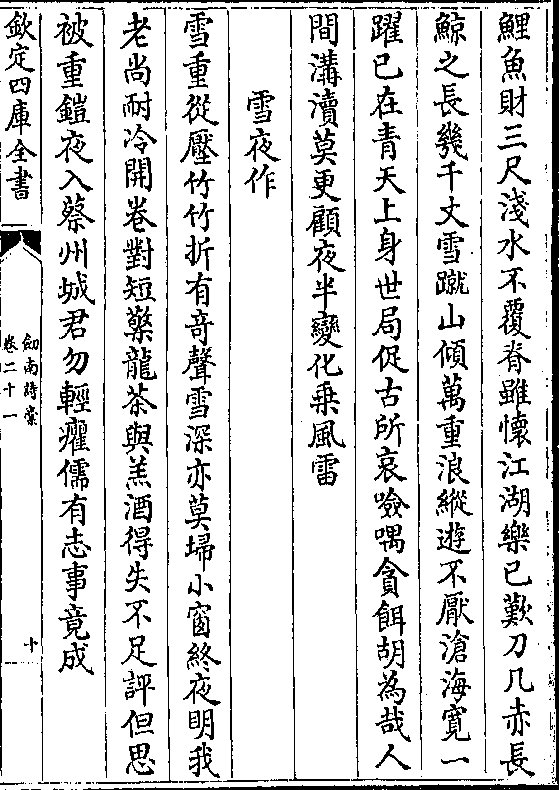 鯉魚財三尺淺水不覆脊雖懷江湖樂已歎刀几赤長
鯨之長幾千丈雪蹴山傾萬重浪縱遊不厭滄海寛一
躍已在青天上身世局促古所哀噞喁貪餌胡為哉人
間溝瀆莫更顧夜半變化乗風雷
雪夜作
雪重從壓竹竹折有竒聲雪深亦莫埽小窗終夜明我
老尚耐冷開卷對短檠龍茶與羔酒得失不足評但思
被重鎧夜入蔡州城君勿輕癯儒有志事竟成
欽定四庫全書
劒南詩稾
卷二十一
十